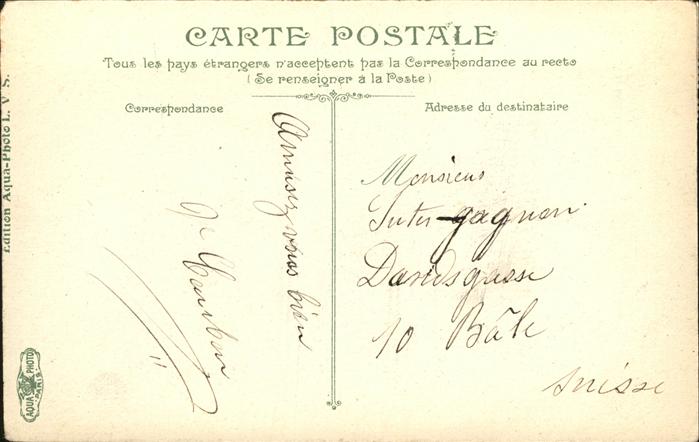 CARTE POSTALE
Tous les pays étrangers n'acceptent pas la Correspondance au recto
(Se renseigner à la Poste)
Correspondance
Adresse du destinataire
Amusez vous bien
Monsieur
Suter-gagnon
Davidsgasse
10 Bâle
Suisse
Edition Aqua-Photo L. V. S.
AQUA PHOTO
PARIS